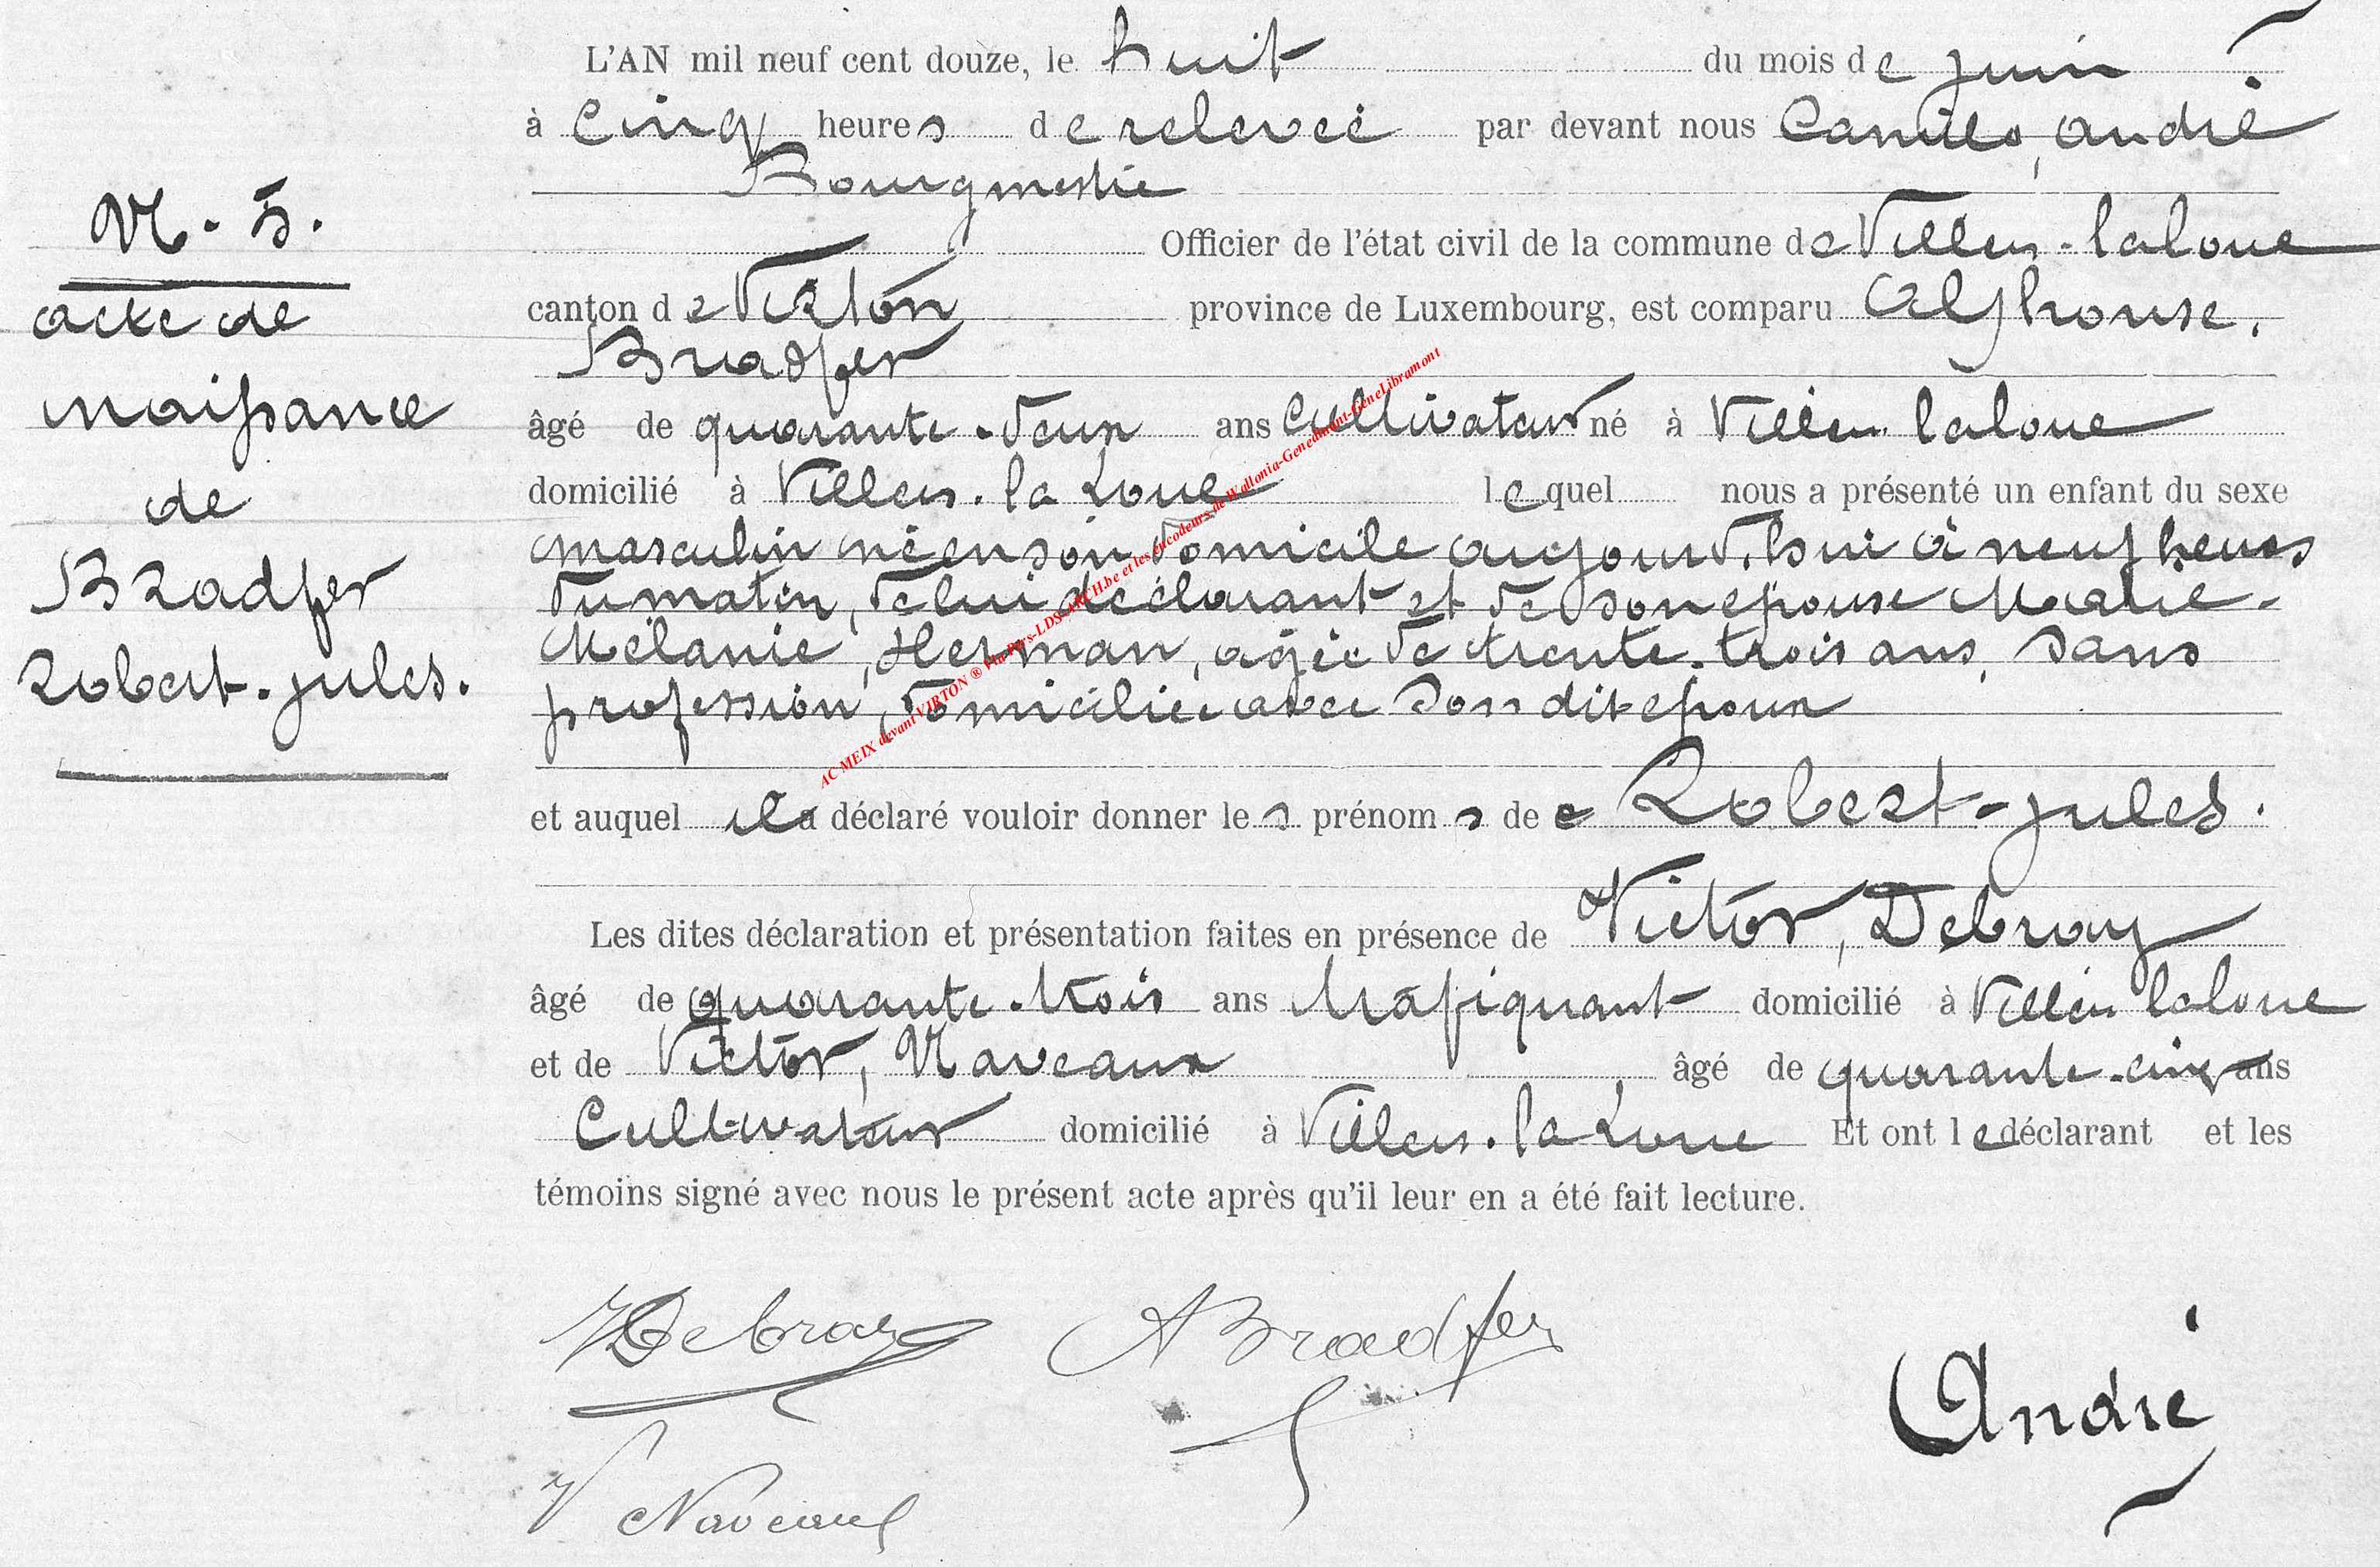 L'AN mil neuf cent douze, le huit du mois de juin
à cinq heures de relevée par devant nous Camille, André
Bourgmestre
Officier de l'état civil de la commune de Villers-la Loue
canton de Virton province de Luxembourg, est comparu Alphonse,
Bradfer
âgé de quarante-deux ans cultivateur né à Villers-la Loue
domicilié à Villers-la Loue lequel nous a présenté un enfant du sexe
masculin né en son domicile aujourd'hui à neuf heures
du matin, de lui déclarant et de son épouse Marie-
Mélanie, Herman, agée de trente-trois ans, sans
profession, domiciliée avec son dit époux
et auquel il a déclaré vouloir donner les prénoms de Robert-Jules.
Les dites déclaration et présentation faites en présence de Victor, Debray
âgé de quarante-trois ans trafiquant domicilié à Villers-la Loue
et de Victor, Naveaux, âgé de quarante-cinq ans
Cultivateur domicilié à Villers-la Loue Et ont le déclarant et les
témoins signé avec nous le présent acte après qu'il leur en a été fait lecture.
N. 5.
acte de
naissance
de
Bradfer
Robert-Jules.
VDebray ABradfer
André
V Naveaux
AC MEIX devant VIRTON ® Via Pers-LDS-ARCH.be et les encodeurs de Wallonia-Genedinant-GeneLibramont